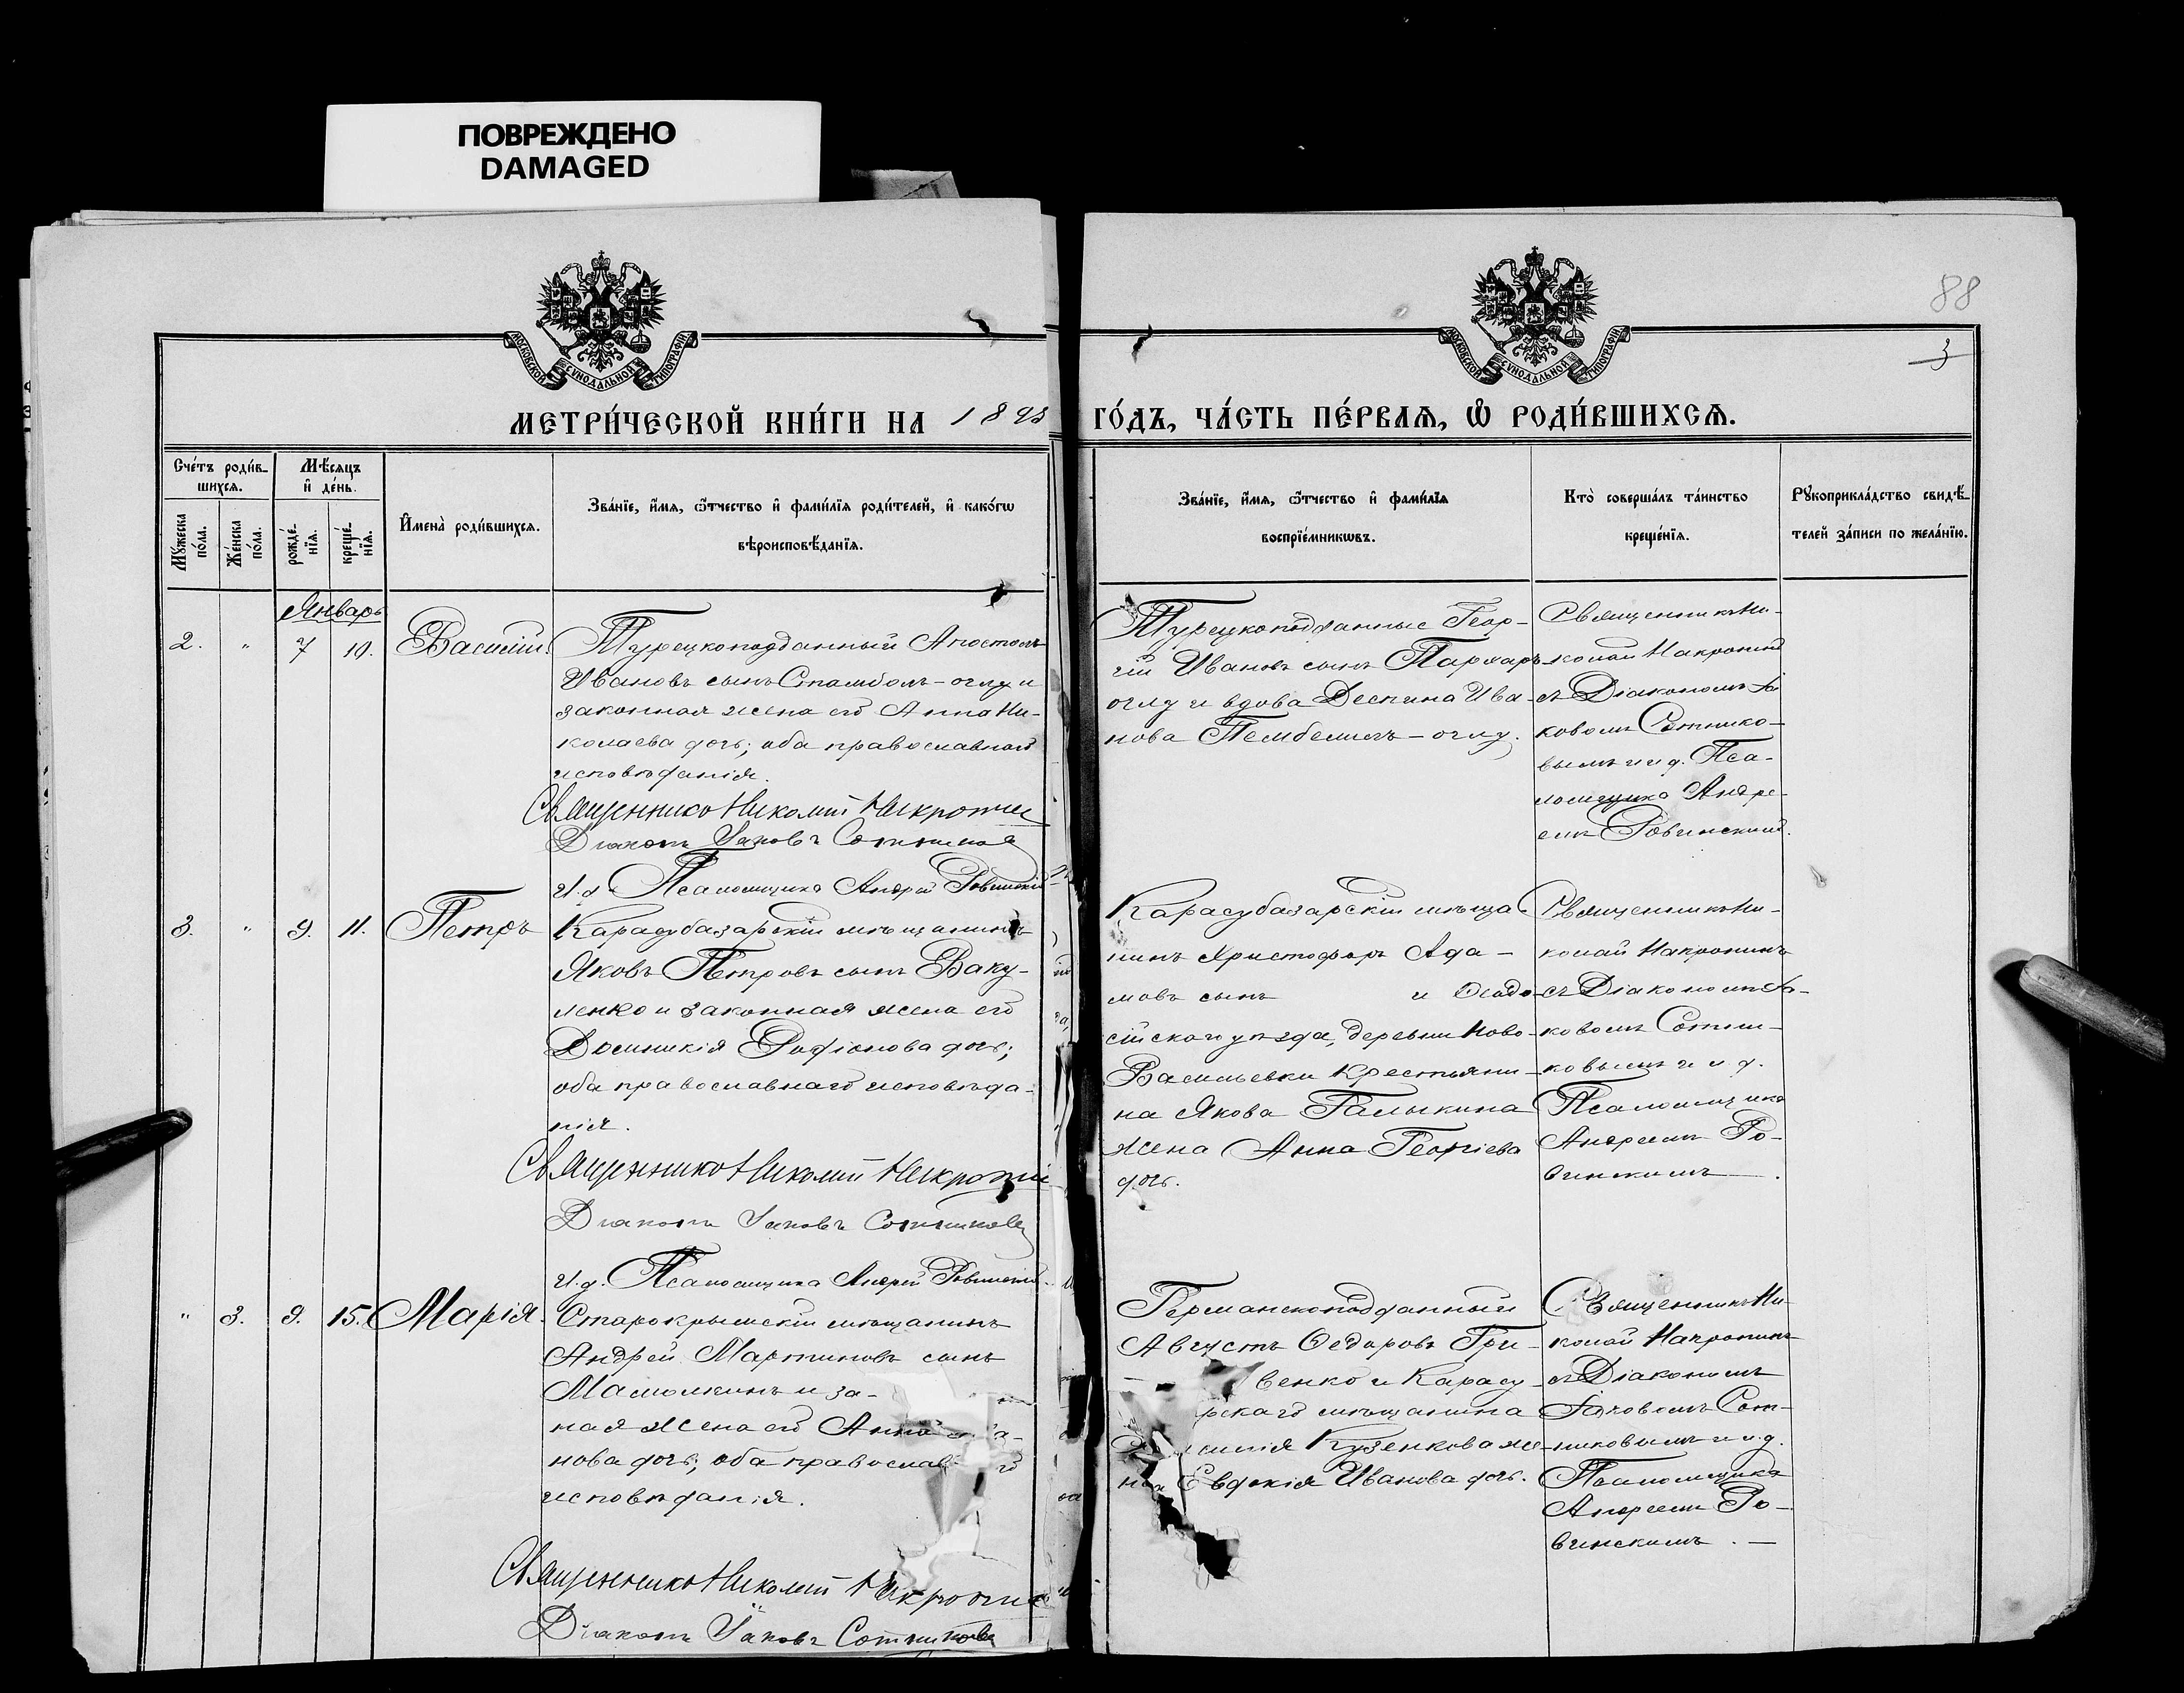 ПОВРЕЖДЕНО
DAMAGED
МОСКОВСКОЙ СѴНОДАЛЬНОЙ ТИПОГРАФІИ
МОСКОВСКОЙ СѴНОДАЛЬНОЙ ТИПОГРАФІИ
88
3
МЕТРИ́ЧЕСКОЙ КНИ́ГИ НА 1893
ГО́ДЪ, ЧА́СТЬ ПЕ́РВАѦ, Ѡ РОДИ́ВШИХСѦ.
Сче́тъ роди́в-
шихсѧ.
Мꙋ́жеска по́ла.
Же́нска по́ла.
Мѣ́сѧцъ
и҆ де́нь.
рожде́-
нїѧ.
креще́-
нїѧ.
И҆мена̀ роди́вшихсѧ.
Зва́нїе, и҆́мѧ, ѻ҆́тчество и҆ фами́лїѧ роди́телей, и҆ како́гѡ
вѣроисповѣ́данїѧ.
Зва́нїе, и҆́мѧ, ѻ҆́тчество и҆ фами́лїѧ
воспрїе́мникѡвъ.
Кто̀ соверша́лъ та́инство
креще́нїѧ.
Рꙋкоприкла́дство свидѣ́-
телей за́писи по жела́нїю.
Январь
2. " 7 10. Василій.
Турецкоподданный Апостолъ
Ивановъ сынъ Стамболъ-оглу и
законная жена его Анна Ни-
колаева дочь; оба православнаго
исповѣданія.
Священникъ Николай
Діаконъ Іаковъ Сотниковъ
И. д. Псаломщика Андрей Ровинскій
Турецкоподданные Геор-
гій Ивановъ сынъ Пархаръ-
оглу и вдова Деспина Ива-
нова оглу.
Священникъ Ни-
колай
съ Діакономъ Іа-
ковомъ Сотнико-
вымъ и и. д. Пса-
ломщика Андре-
емъ Ровинскимъ.
3. " 9. 11. Петръ
Карасубазарскій мѣщанинъ
Яковъ Петровъ сынъ Ваку-
ленко и законная жена его
Домникія Родіонова дочь;
оба православнаго исповѣда-
нія.
Священникъ Николай
Діаконъ Іаковъ Сотниковъ
И. д. Псаломщика Андрей Ровинскій
Карасубазарскій мѣща-
нинъ Христофоръ Ада-
мовъ сынъ и Ѳеодо-
сійскаго уѣзда, деревни Ново-
Васильевки крестьяни-
на Якова Галыкина
жена Анна Георгіева
дочь.
Священникъ Ни-
колай
съ Діакономъ Іа-
ковомъ Сотни-
ковымъ и и. д.
Псаломщика
Андреемъ Ро-
винскимъ.
" 3. 9. 15. Марія.
Старокрымскій мѣщанинъ
Андрей Мартиновъ сынъ
и за-
ная жена его Анна
нова дочь; оба православ
исповѣданія.
Священникъ Николай
Діаконъ Іаковъ Сотниковъ
Германскоподданный
Августъ Ѳедоровъ Гри-
венко и Карасу-
рскаго мѣщанина
Кузенкова же-
на Евдокія Иванова дочь.
Священникъ Ни-
колай
съ Діакономъ
Іаковомъ Сот-
никовымъ и и. д.
Псаломщика
Андреемъ Ро-
винскимъ. —